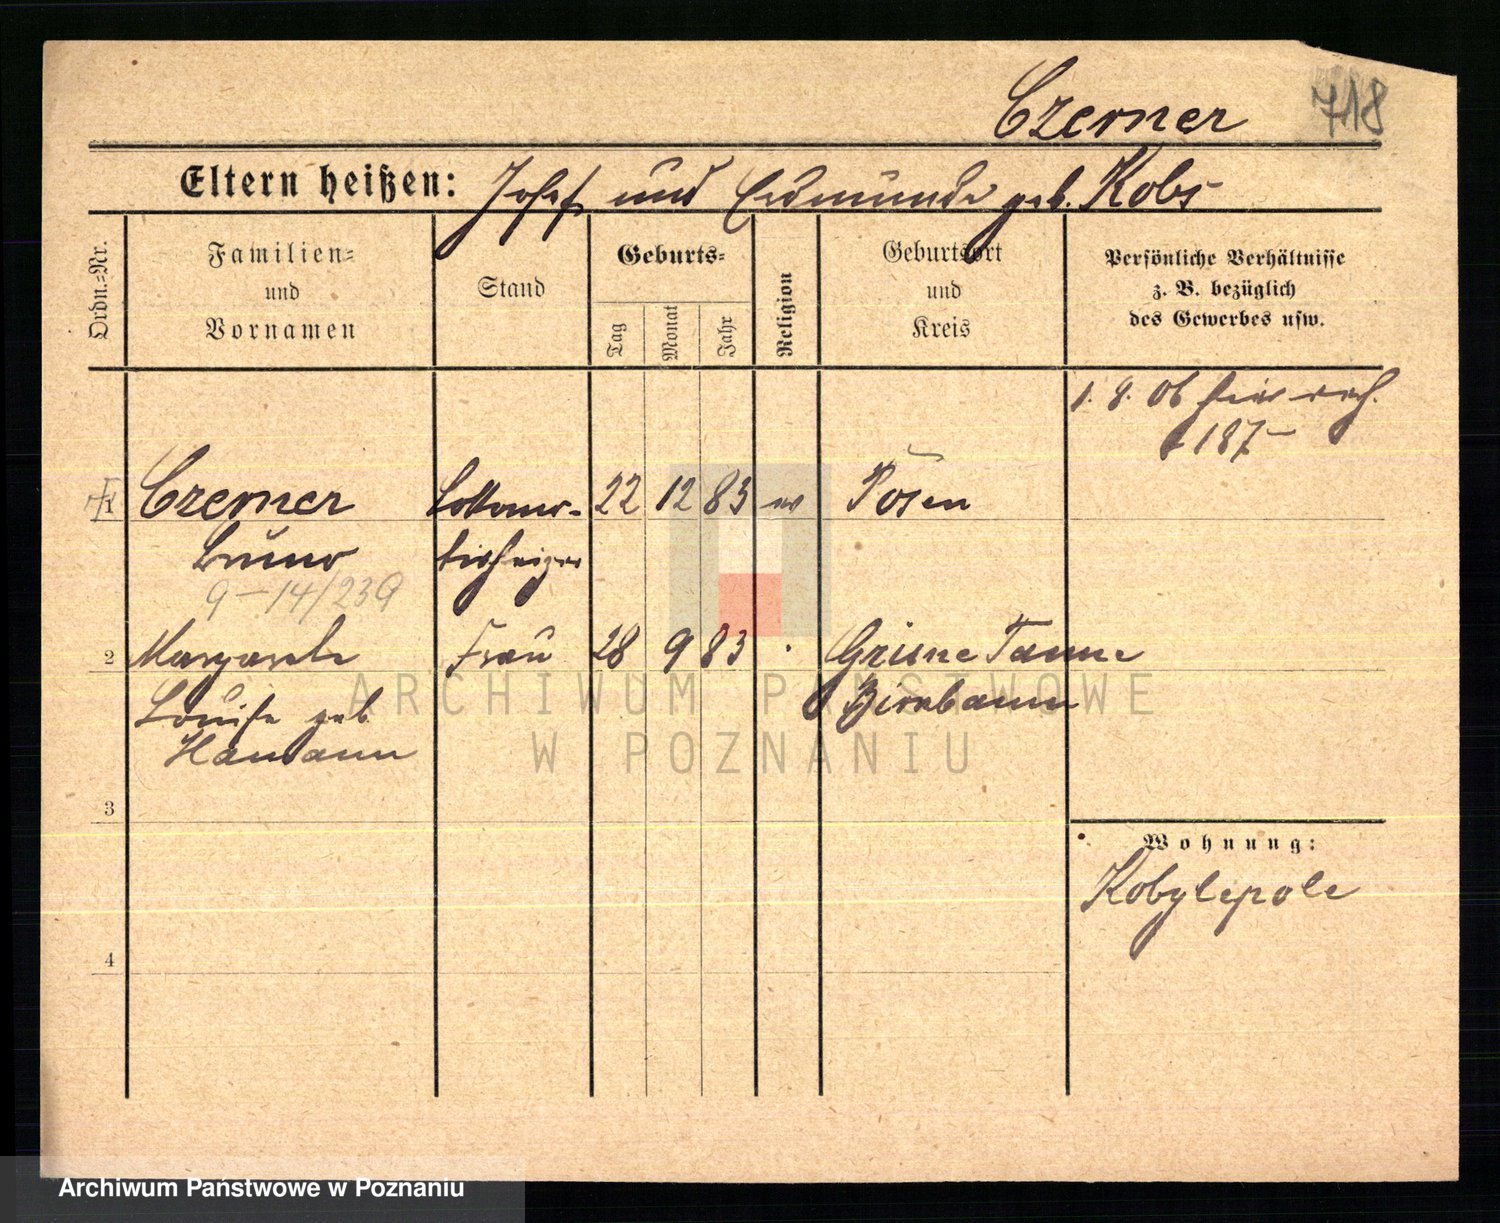 Czerner 718
Eltern heißen: Josef und Edmunde geb. Kobs
Ordn.-Nr.
Familien=
und
Vornamen
Stand
Geburts=
Tag
Monat
Jahr
Religion
Geburtsort
und
Kreis
Persönliche Verhältnisse
z. B. bezüglich
des Gewerbes usw.
1. 9. 06
187-
1 Czerner Lokomo- 22 12 83 ev Posen
Bruno tivheizer
9-14/239
2 Margarete Frau 28 9 83 Grüne Tanne
Louise geb Birnbaum
Hamann
3
Wohnung:
Kobylepole
4
ARCHIWUM PAŃSTWOWE
W POZNANIU
Archiwum Państwowe w Poznaniu